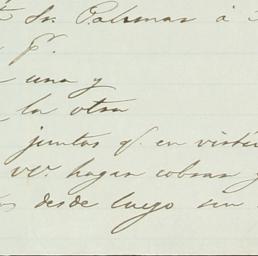 Sr. Palomar á
pr.
una y
la otra
juntas q. en virtud
vv. hagan cobrar y
desde luego sin